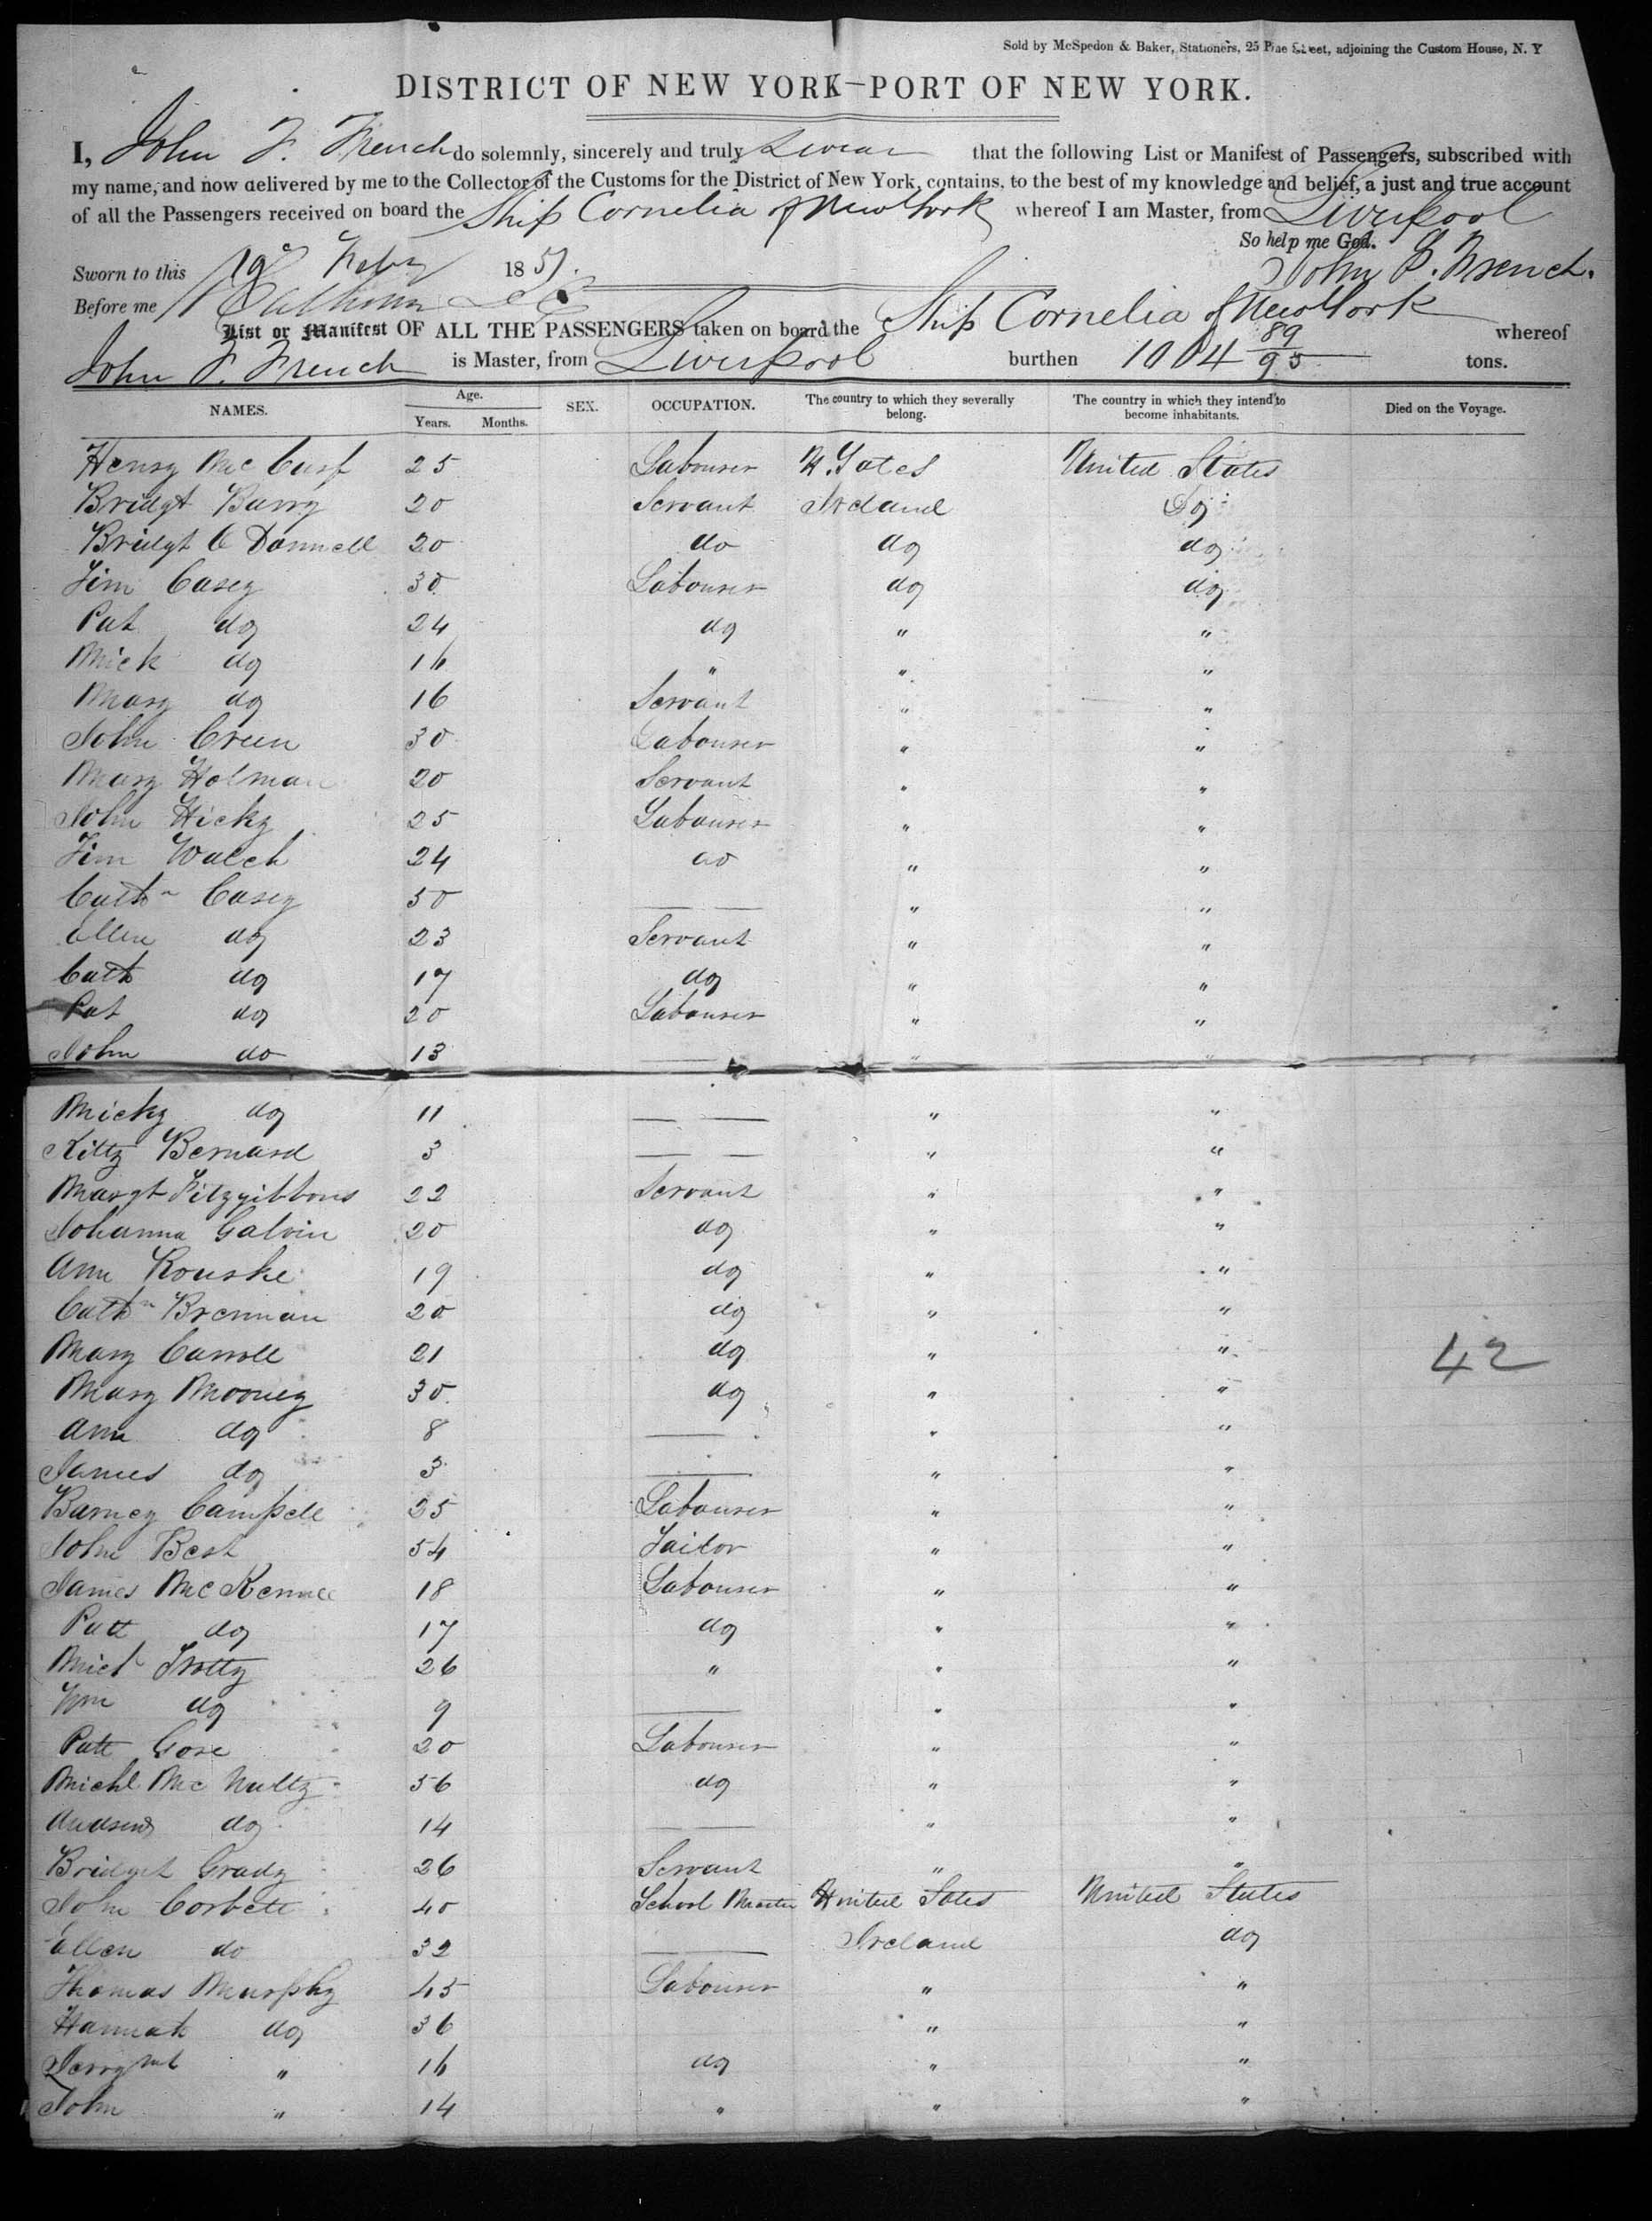 Sold by McSpedon & Baker, Stationers, 25 Pine Street, adjoining the Custom House, N. Y
DISTRICT OF NEW YORK—PORT OF NEW YORK.
I, John F. French do solemnly, sincerely and truly Swear that the following List or Manifest of Passengers, subscribed with
my name, and now delivered by me to the Collector of the Customs for the District of New York, contains, to the best of my knowledge and belief, a just and true account
of all the Passengers received on board the Ship Cornelia of New York whereof I am Master, from Liverpool
So help me God.
Sworn to this 19 Feby 1851. John F. French.
Before me
List or Manifest OF ALL THE PASSENGERS taken on board the Ship Cornelia of New York whereof
John F. French is Master, from Liverpool burthen 1004 89/95 tons.
NAMES. Age. Years. Months. SEX. OCCUPATION. The country to which they severally belong. The country in which they intend to become inhabitants. Died on the Voyage.
Henry 25 Labourer United States
Bridgt Barry 20 Servant Ireland Do
Bridgt O Donnell 20 do do do
Jim Casey 30 Labourer do do
Pat do 24 do " "
Mick do 16 " " "
Mary do 16 Servant " "
John Creen 30 Labourer " "
Mary Holman 20 Servant " "
John Hicky 25 Labourer " "
Jim Walch 24 do " "
Cathn Casey 50 — — " "
Ellen do 23 Servant " "
Cath do 17 do " "
Pat do 20 Labourer " "
John do 13 — " "
Micky do 11 — — " "
Kitty Bernard 3 — — " "
Margt Fitzgibbons 22 Servant " "
Johanna Galvin 20 do " "
Ann Rourke 19 do " "
Cathn Brennan 20 do " "
Mary Carroll 21 do " "
42
Mary Mooney 30 do " "
Ann do 8 — " "
James do 3 — " "
Barney Campell 25 Labourer " "
John Best 54 Tailor " "
James McKenna 18 Labourer " "
Patt do 17 do " "
Micl Trotty 26 " " "
Wm do 9 — " "
Patt Gore 20 Labourer " "
Michl McNulty 56 do " "
Andrew do 14 — — " "
Bridget Grady 26 Servant " "
John Corbett 40 School Master United States United States
Ellen do 32 — Ireland do
Thomas Murphy 45 Labourer " "
Hannah do 36 " "
" 16 do " "
John " 14 " " "